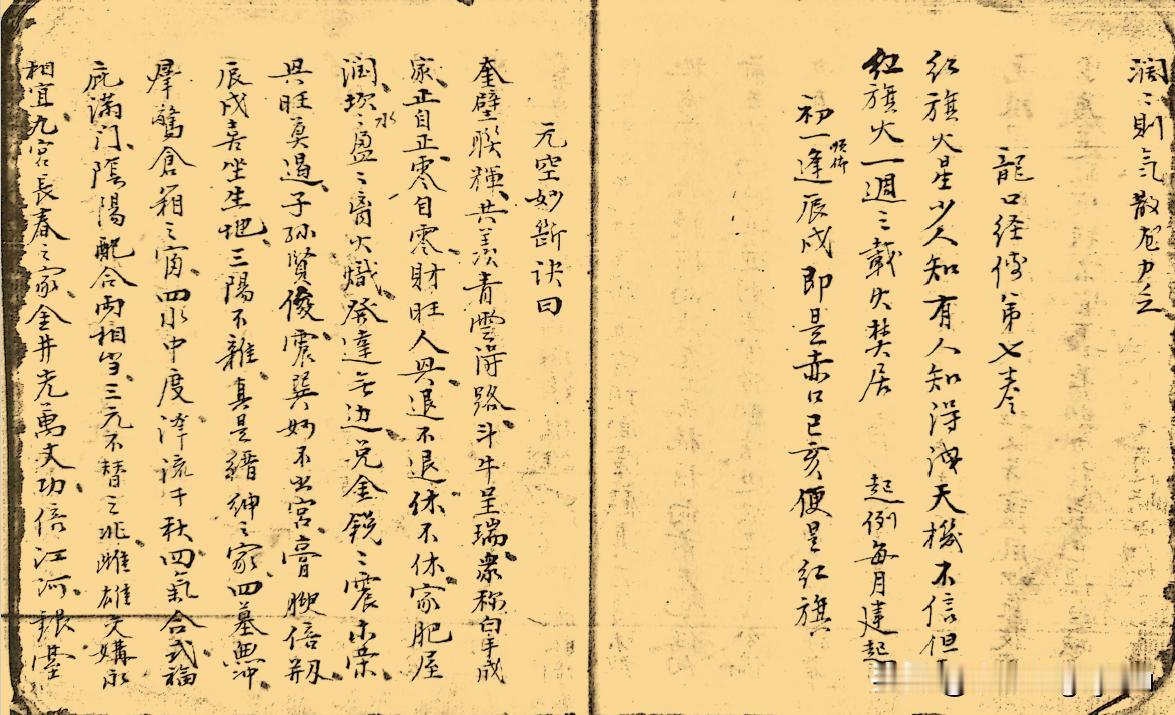 润〻則氣散龙力乏
龍口经傅第七卷
红旗火星少人知有人知得洩天機不信但
红旗火一週三載火焚居 起例每月建起
初一順倂逢辰戌即是赤口巳亥便是红旗
元空妙断诀曰
奎壁聨輝共羨青雲得路斗牛呈瑞衆称白手成
家正自正零自零財旺人興退不退休不休家肥屋
润坎水〻盈〻离火熾發達無边兑金鋭〻震木荣
興旺莫遏子孫賢俊震巽妙不出宫膏腴倍
辰戌喜坐生地三陽不雜真是縉紳之家四墓無冲
倉箱之富四水中度澤流千秋四氣合式福
庇满门陰陽配合両相当三元不替之兆雌雄交媾永
相宜九宫長春之家金井光萬丈功倍江河銀臺